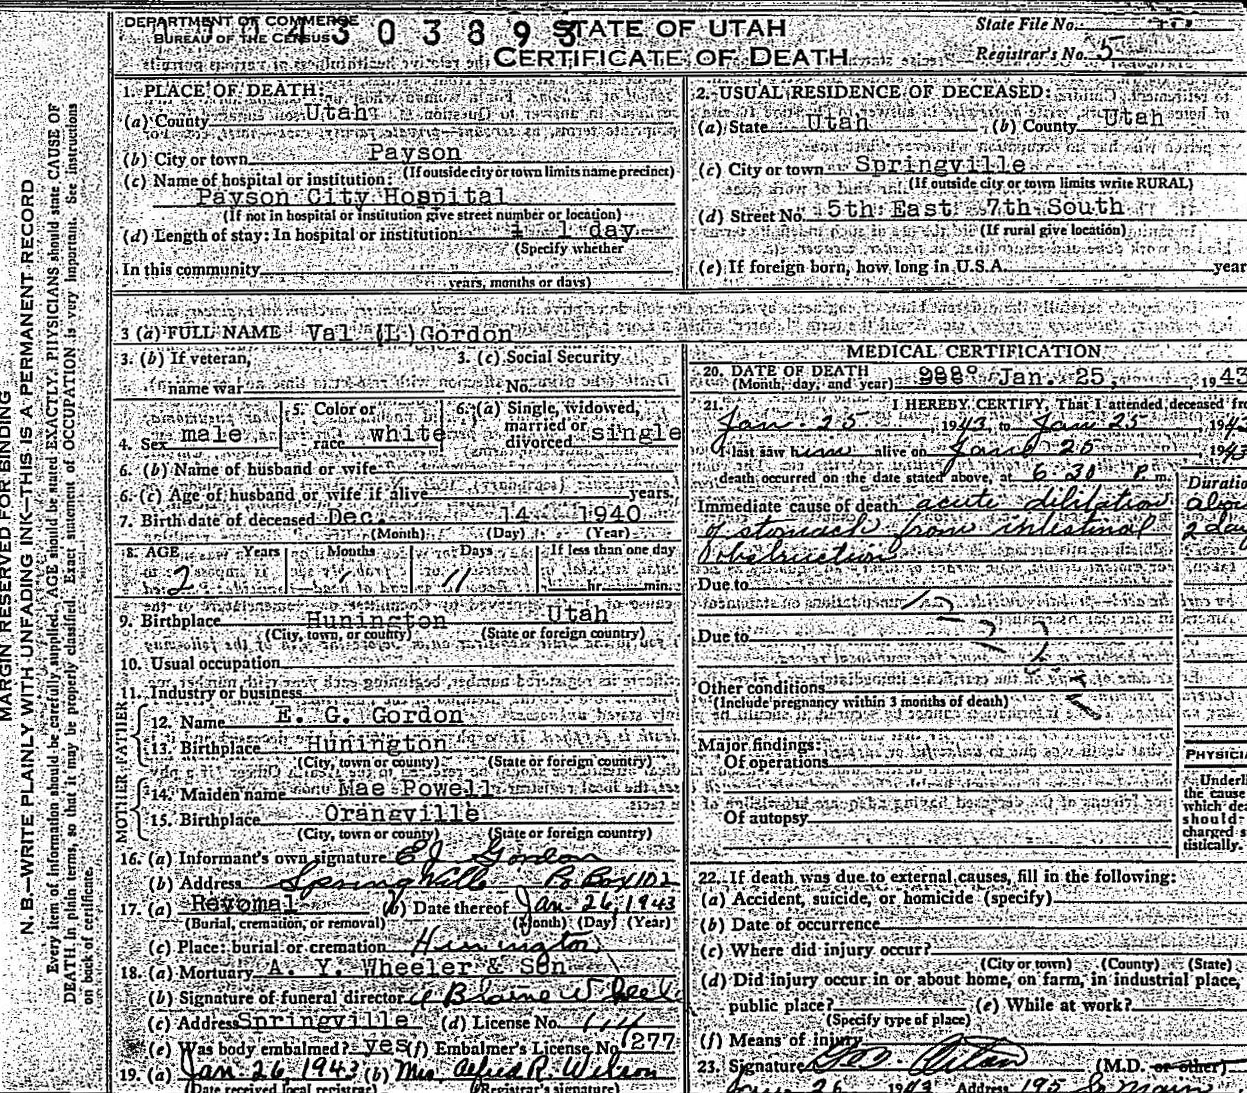 DEPARTMENT OF COMMERCE
BUREAU OF THE CENSUS
4303893
STATE OF UTAH
CERTIFICATE OF DEATH
State File No.
Registrar's No. 5
MARGIN RESERVED FOR BINDING
N. B.—WRITE PLAINLY WITH UNFADING INK—THIS IS A PERMANENT RECORD
Every item of information should be carefully supplied. AGE should be stated EXACTLY. PHYSICIANS should state CAUSE OF
DEATH in plain terms, so that it may be properly classified. Exact statement of OCCUPATION is very important. See instructions
on back of certificate.
1. PLACE OF DEATH:
(a) County Utah
(b) City or town Payson
(If outside city or town limits name precinct)
(c) Name of hospital or institution:
Payson City Hospital
(If not in hospital or institution give street number or location)
(d) Length of stay: In hospital or institution 1 day
(Specify whether
In this community
years, months or days)
2. USUAL RESIDENCE OF DECEASED:
(a) State Utah (b) County Utah
(c) City or town Springville
(If outside city or town limits write RURAL)
(d) Street No. 5th East 7th South
(If rural give location)
(e) If foreign born, how long in U.S.A. year
3 (a) FULL NAME Val (L) Gordon
3. (b) If veteran,
name war
3. (c) Social Security
No.
4. Sex male
5. Color or
race white
6. (a) Single, widowed,
married or
divorced single
6. (b) Name of husband or wife
6. (c) Age of husband or wife if alive years.
7. Birth date of deceased Dec. 14 1940
(Month) (Day) (Year)
8. AGE Years Months Days If less than one day
2 1 11 hr. min.
9. Birthplace Hunington Utah
(City, town, or county) (State or foreign country)
10. Usual occupation
11. Industry or business
FATHER
12. Name E. G. Gordon
13. Birthplace Hunington
(City, town or county) (State or foreign country)
MOTHER
14. Maiden name Mae Powell
15. Birthplace Orangville
(City, town or county) (State or foreign country)
16. (a) Informant's own signature E J Gordon
(b) Address Springville Po Box 102
17. (a) Revomal (b) Date thereof Jan. 26, 1943
(Burial, cremation, or removal) (Month) (Day) (Year)
(c) Place: burial or cremation Hunington
18. (a) Mortuary A. Y. Wheeler & Son
(b) Signature of funeral director A Blaine Wheel
(c) Address Springville (d) License No. 144
(e) Was body embalmed? yes (f) Embalmer's License No. 277
19. (a) Jan. 26, 1943 (b) Mrs. Alfred R. Wilson
(Date received local registrar) (Registrar's signature)
MEDICAL CERTIFICATION
20. DATE OF DEATH
(Month, day, and year) Jan. 25, , 1943
21. I HEREBY CERTIFY, That I attended deceased fro
Jan. 25 , 1943, to Jan 25 , 1943
I last saw him alive on Jan 25 , 1943
death occurred on the date stated above, at 6:30 P. m.
Immediate cause of death acute dilitation
of stomach from intestinal
obstruction
Duratio
abou
2 day
Due to
Due to
Other conditions
(Include pregnancy within 3 months of death)
Major findings:
Of operations
Of autopsy
PHYSICIA
Underli
the cause
which dea
should
charged s
tistically.
22. If death was due to external causes, fill in the following:
(a) Accident, suicide, or homicide (specify)
(b) Date of occurrence
(c) Where did injury occur?
(City or town) (County) (State)
(d) Did injury occur in or about home, on farm, in industrial place,
public place? (e) While at work?
(Specify type of place)
(f) Means of injury
23. Signature (M.D. or other)
26 1943 Address 195 So Main